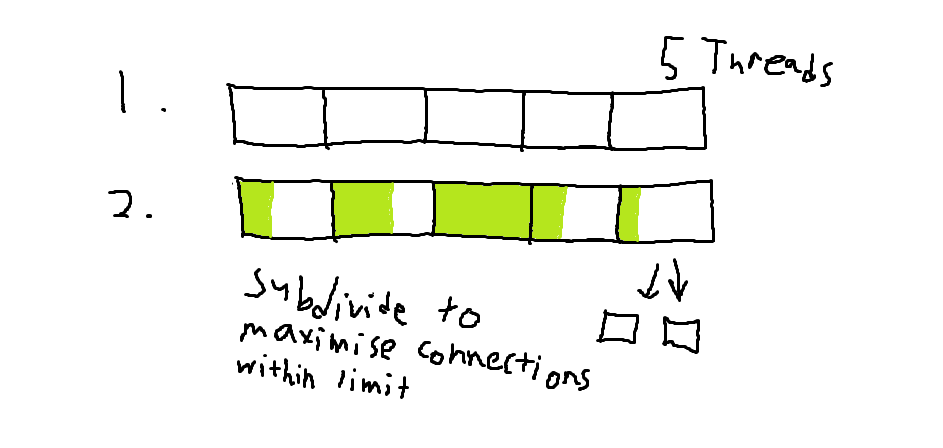 5 Threads
1.
2.
Subdivide to
maximise connections
within limit